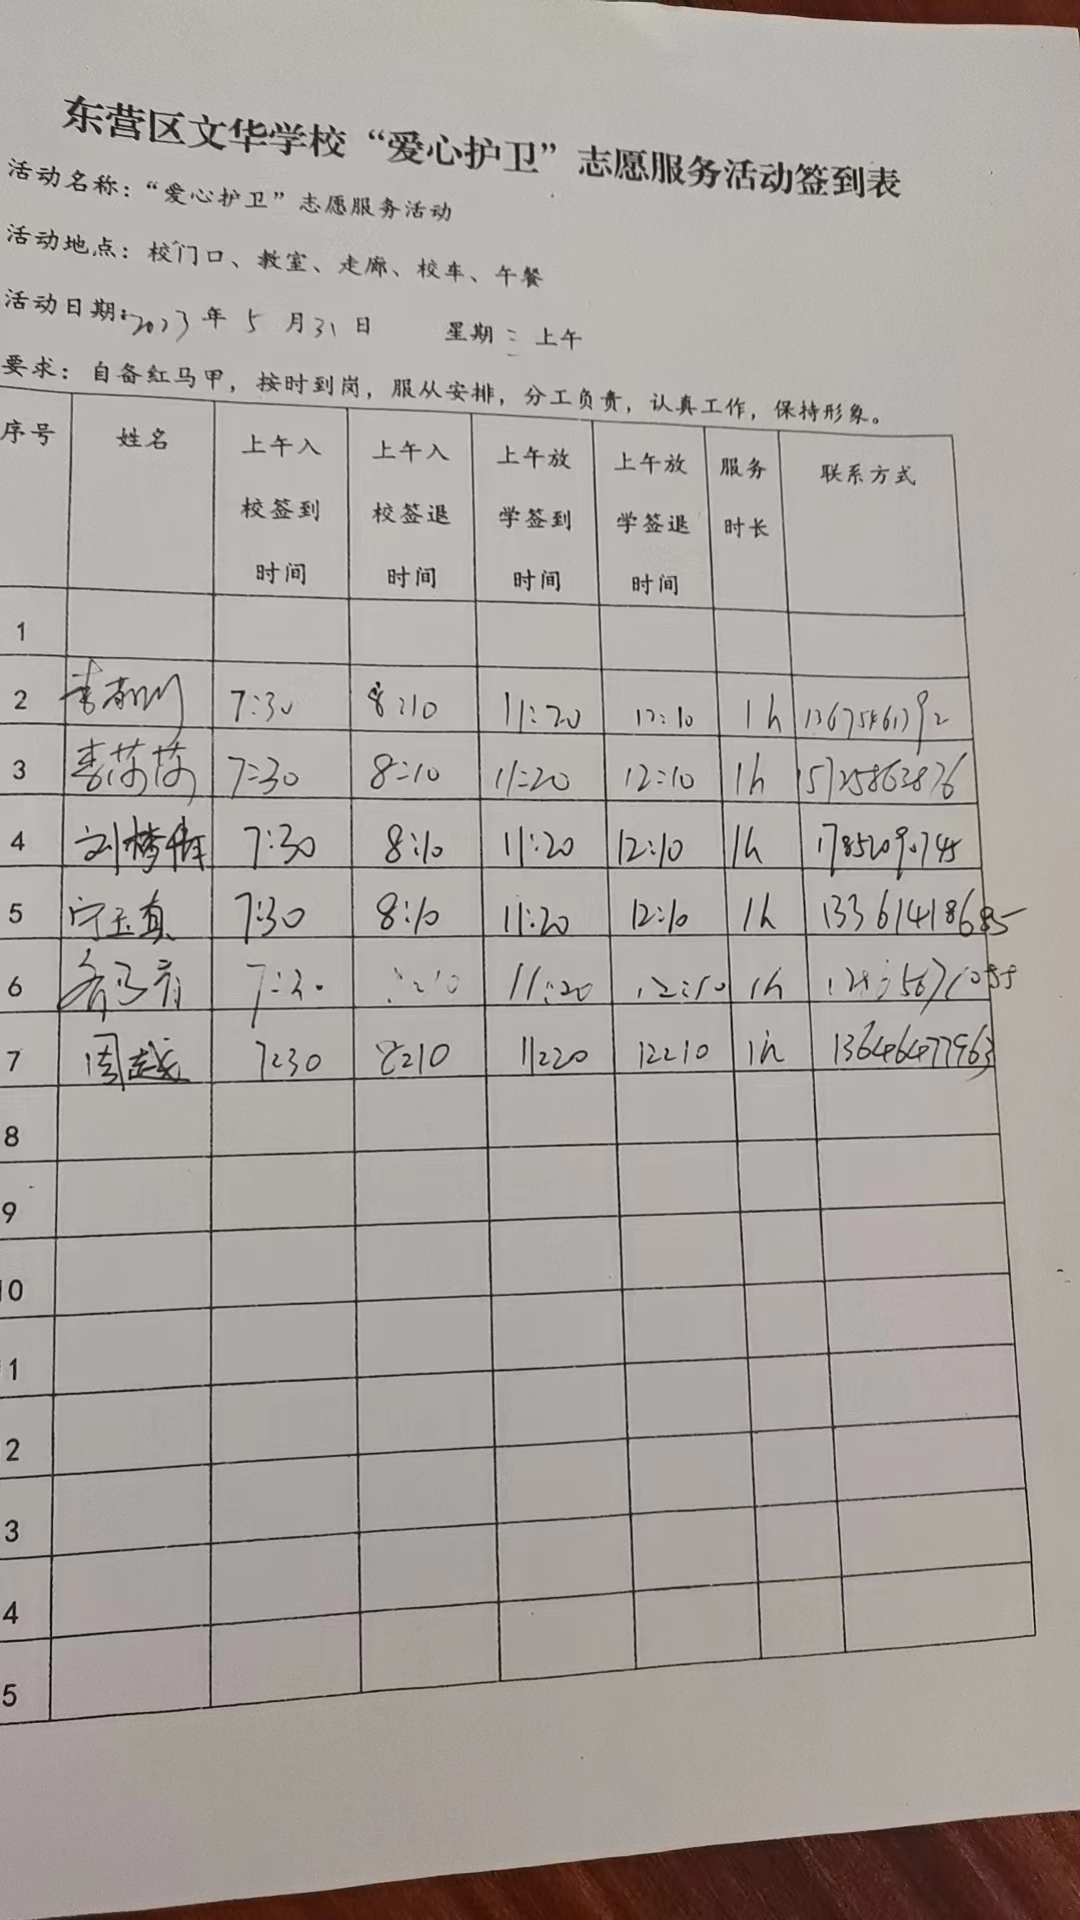 东营区文华学校“爱心护卫”志愿服务活动签到表
活动名称：“爱心护卫”志愿服务活动
活动地点：校门口、教室、走廊、校车、午餐
活动日期：2023年5月31日 星期三 上午
要求：自备红马甲，按时到岗，服从安排，分工负责，认真工作，保持形象。
序号 姓名 上午入校签到时间 上午入校签退时间 上午放学签到时间 上午放学签退时间 服务时长 联系方式
1
2 7:30 8:10 11:20 12:10 1h
3 李莎莎 7:30 8:10 11:20 12:10 1h 15725863876
4 7:30 8:10 11:20 12:10 1h
5 宁玉真 7:30 8:10 11:20 12:10 1h 13361418685
6 7:30 11:20 12:10 1h
7 周越 7:30 8:10 11:20 12:10 1h 13646477963
8
9
10
1
2
3
4
5